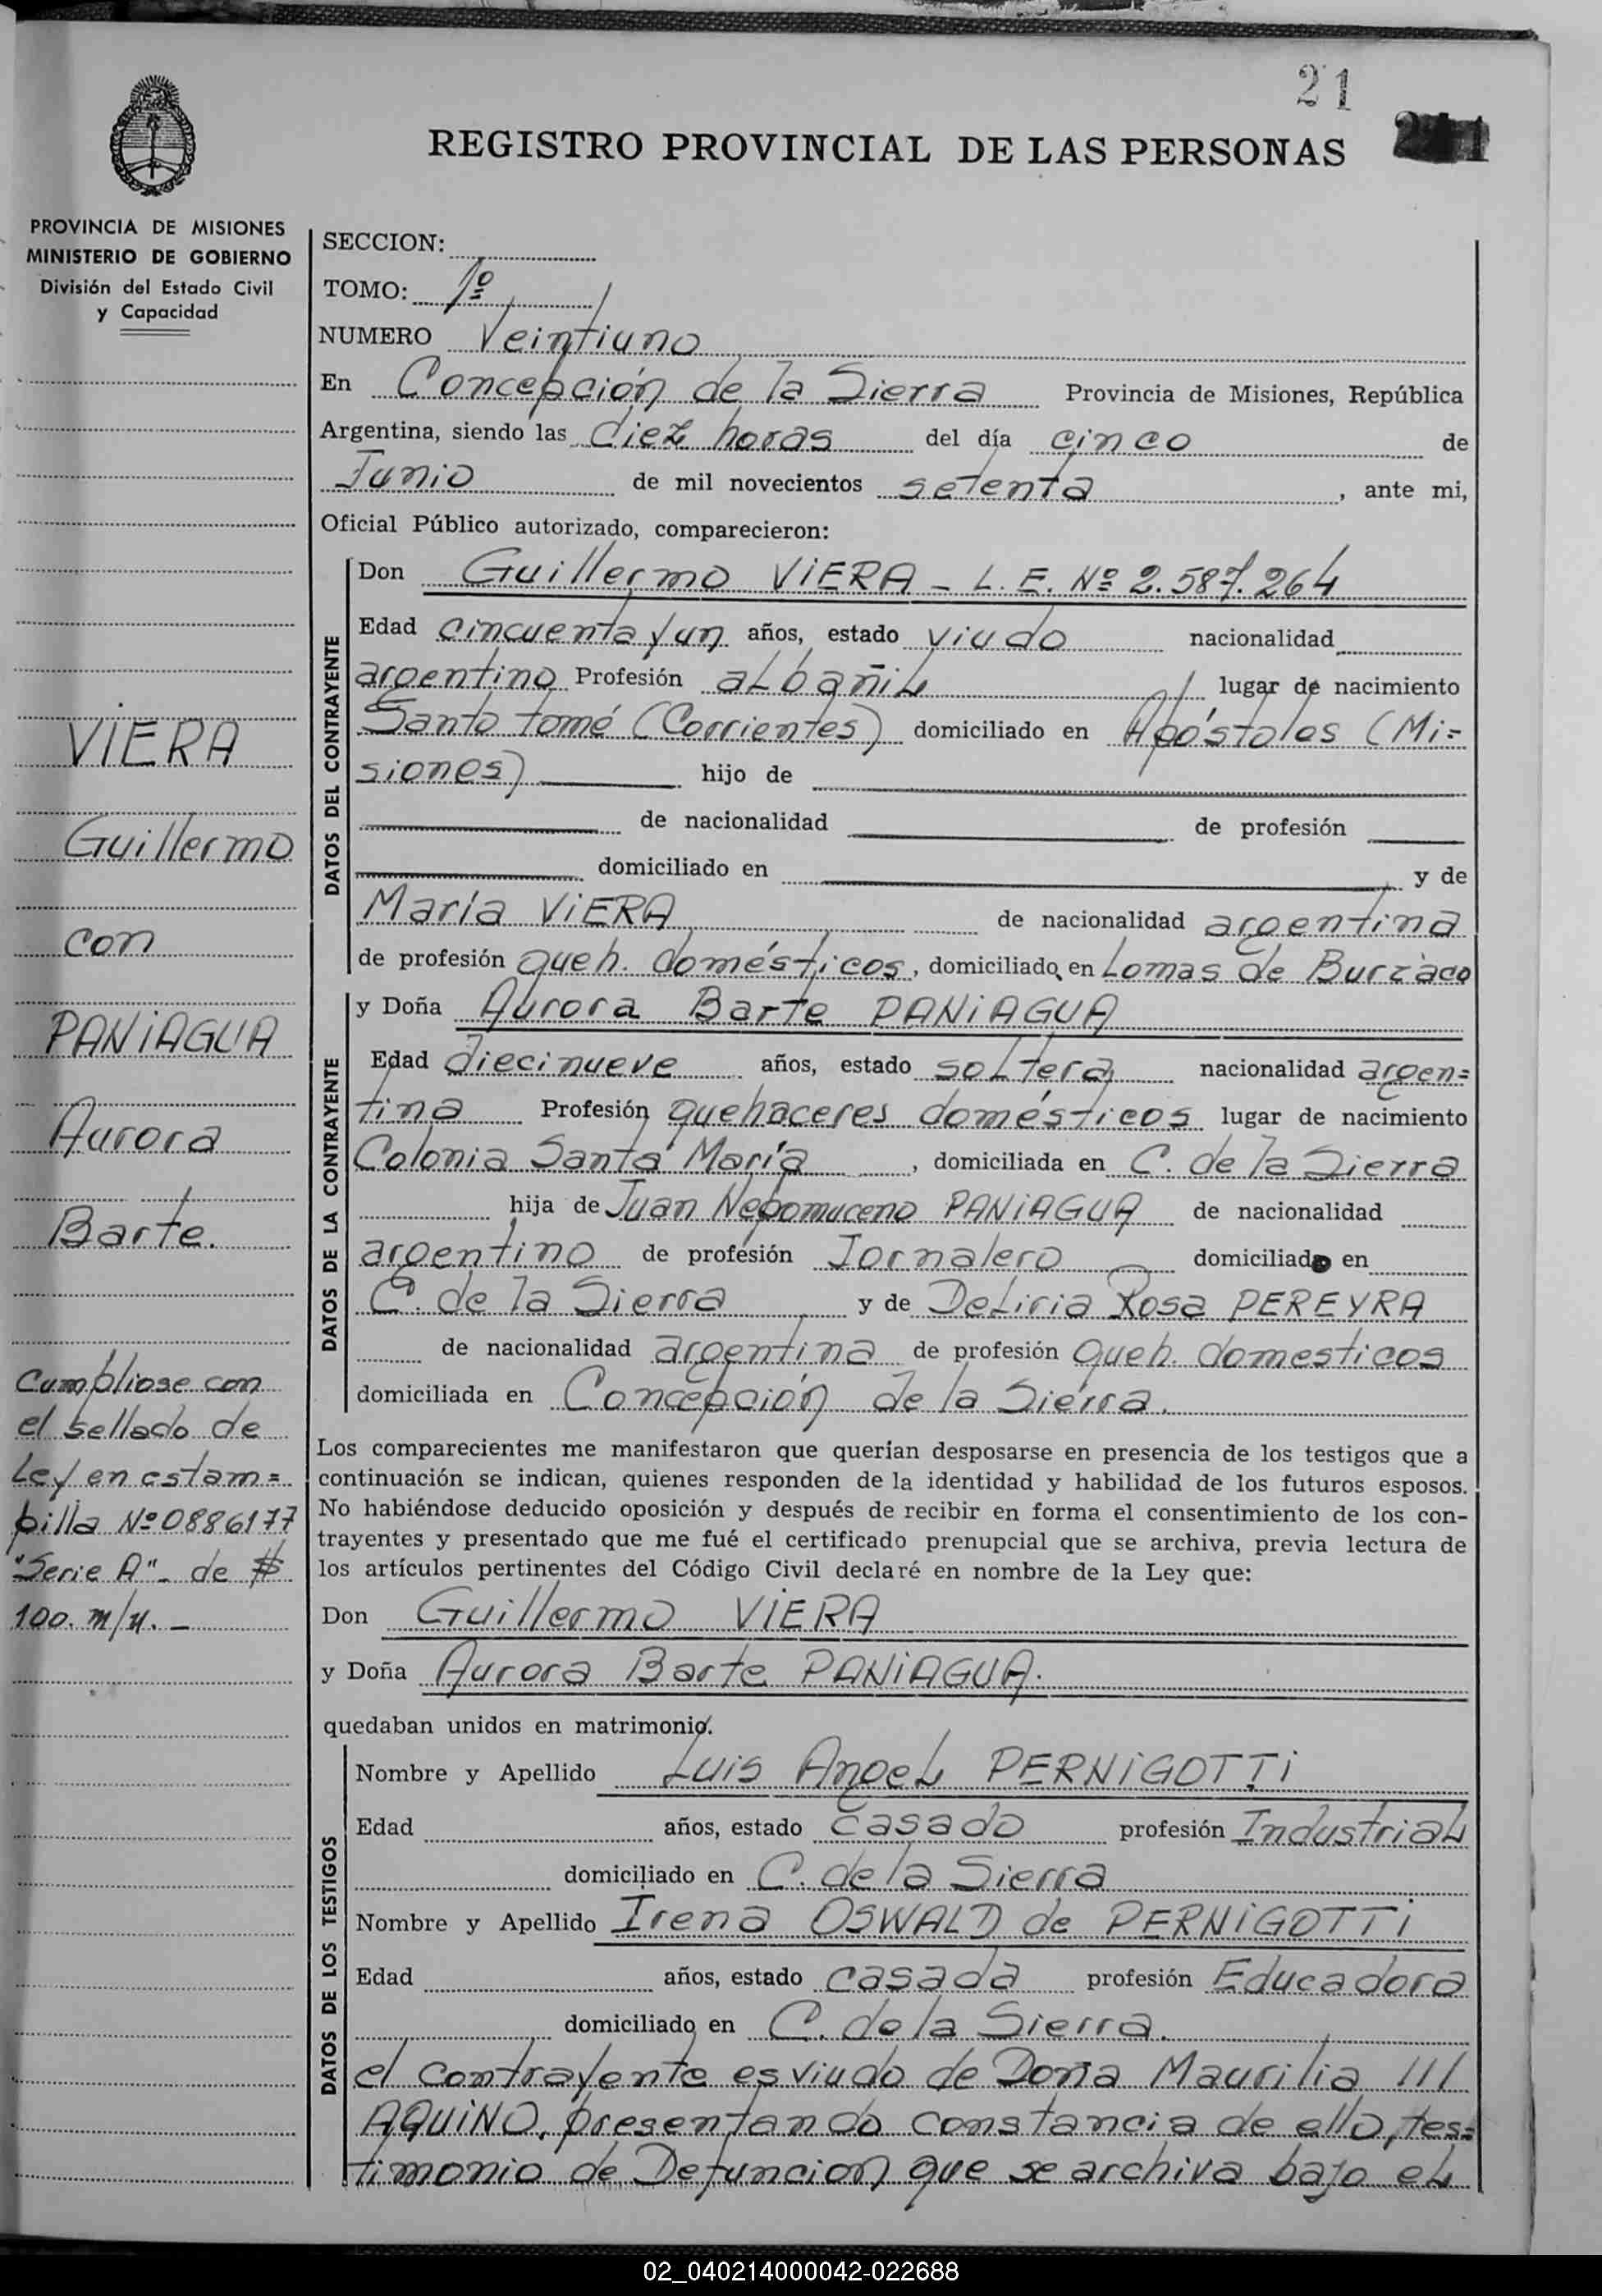 21
REGISTRO PROVINCIAL DE LAS PERSONAS
PROVINCIA DE MISIONES
MINISTERIO DE GOBIERNO
División del Estado Civil
y Capacidad
VIERA
Guillermo
con
PANIAGUA
Aurora
Barte.
Cumpliose con
el sellado de
Ley en estam=
pilla Nº 0886177
"Serie A" - de $
100. m/n. -
SECCION:
TOMO: 1º
NUMERO Veintiuno
En Concepción de la Sierra Provincia de Misiones, República
Argentina, siendo las diez horas del día cinco de
Junio de mil novecientos setenta, ante mi,
Oficial Público autorizado, comparecieron:
DATOS DEL CONTRAYENTE
Don Guillermo VIERA - L. E. Nº 2.587.264
Edad cincuenta y un años, estado viudo nacionalidad
argentino Profesión albañil lugar de nacimiento
Santo tomé (Corrientes) domiciliado en Apóstoles (Mi=
siones) hijo de
de nacionalidad de profesión
domiciliado en y de
María VIERA de nacionalidad argentina
de profesión queh. domésticos, domiciliado en Lomas de Burzaco
DATOS DE LA CONTRAYENTE
y Doña Aurora Barte PANIAGUA
Edad diecinueve años, estado soltera nacionalidad argen=
tina Profesión quehaceres domésticos lugar de nacimiento
Colonia Santa María, domiciliada en C. de la Sierra
hija de Juan Nepomuceno PANIAGUA de nacionalidad
argentino de profesión Jornalero domiciliado en
C. de la Sierra y de Deliria Rosa PEREYRA
de nacionalidad argentina de profesión queh. domesticos
domiciliada en Concepción de la Sierra.
Los comparecientes me manifestaron que querían desposarse en presencia de los testigos que a
continuación se indican, quienes responden de la identidad y habilidad de los futuros esposos.
No habiéndose deducido oposición y después de recibir en forma el consentimiento de los con-
trayentes y presentado que me fué el certificado prenupcial que se archiva, previa lectura de
los artículos pertinentes del Código Civil declaré en nombre de la Ley que:
Don Guillermo VIERA
y Doña Aurora Barte PANIAGUA.
quedaban unidos en matrimonio.
DATOS DE LOS TESTIGOS
Nombre y Apellido Luis Angel PERNIGOTTI
Edad años, estado casado profesión Industrial
domiciliado en C. de la Sierra
Nombre y Apellido Irena OSWALD de PERNIGOTTI
Edad años, estado casada profesión Educadora
domiciliado en C. de la Sierra.
el contrayente es viudo de Doña Maurilia ///
AQUINO, presentando constancia de ello, tes=
timonio de Defuncion que se archiva bajo el
02_040214000042-022688